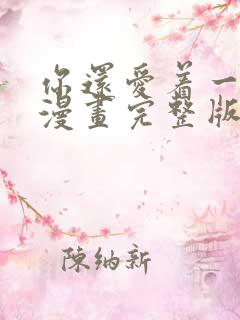 你還愛着一
漫畫完整版
陳納新